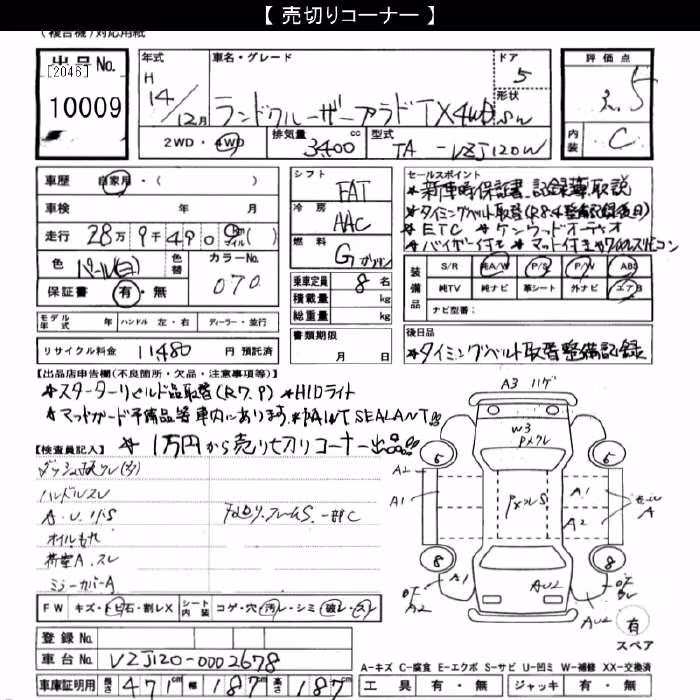 【 売切りコーナー 】
(複合機)対応用紙
出品No.
[2046]
10009
年式
H
14/12月
車名・グレード
ランドクルーザープラド TX 4WD
ドア
5
形状
SW
評価点
3.5
内装
C
2WD・4WD
排気量
3400 cc
型式
TA - VZJ120W
車歴 自家用・( )
車検 年 月
走行 28万9千490 Km マイル ( )
色 パール(白)
色替
カラーNo.
070
保証書 有・無
シフト
FAT
冷房
AAC
燃料
G ガソリン
乗車定員 8 名
積載量 kg
総重量 kg
書類期限
月 日
セールスポイント
★新車時保証書、記録簿、取説
★タイミングベルト取替(R8.4整備記録後日)
★ETC ★ケンウッドオーディオ
★バイザー付き ★マット付き
装備品
S/R 純A/W P/S P/W ABS
純TV 純ナビ 革シート 外ナビ エアB
ナビ型番:
モデル年式 年 ハンドル 左・右 ディーラー・並行
リサイクル料金 11480 円 預託済
後日品
★タイミングベルト取替整備記録
【出品店申告欄(不良箇所・欠品・注意事項等)】
★スターターリビルド品取替(R7.9) ★HIDライト
★マッドガード予備品等車内にあります。★PAINT SEALANT!!
★1万円から売り切りコーナー出品!!
【検査員記入】
ハンドルスレ
下廻り.フレームS.一部C
オイルもれ
荷室A.スレ
ミラーカバーA
FW キズ・トビ石・割レX
シート内装 コゲ・穴・汚レ・シミ・破レ・スレ
登録No.
車台No. VZJ120-0002678
車庫証明用 長さ 471 cm 幅 187 cm 高さ 187 cm
A3 ハゲ
W3
Pメクレ
6
6
A2
A1
PメクレS
A1
A2
モール
A
8
8
A1
AU2
AU2
有
スペア
A=キズ C=腐食 E=エクボ S=サビ U=凹ミ W=補修 XX=交換済
工具 有・無 ジャッキ 有・無